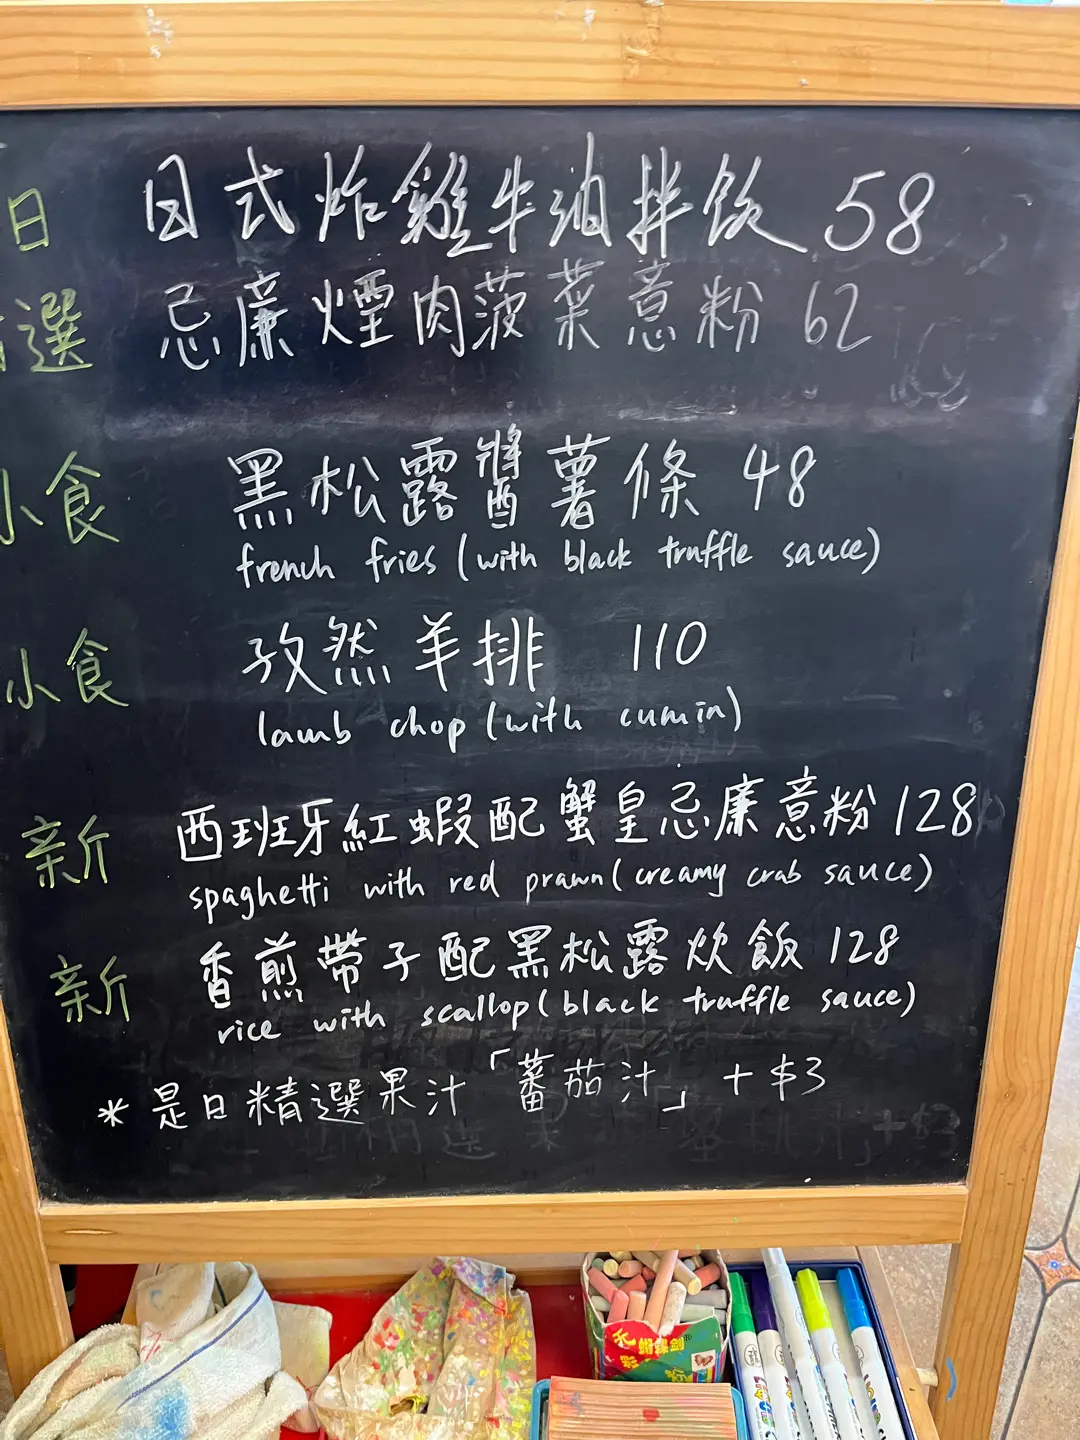 日 日式炸雞牛油拌飯 58
選 忌廉煙肉菠菜意粉 62
小食 黑松露醬薯條 48
french fries (with black truffle sauce)
小食 孜然羊排 110
lamb chop (with cumin)
新 西班牙紅蝦配蟹皇忌廉意粉 128
spaghetti with red prawn (creamy crab sauce)
新 香煎帶子配黑松露炊飯 128
rice with scallop (black truffle sauce)
* 是日精選果汁「蕃茄汁」 + $3